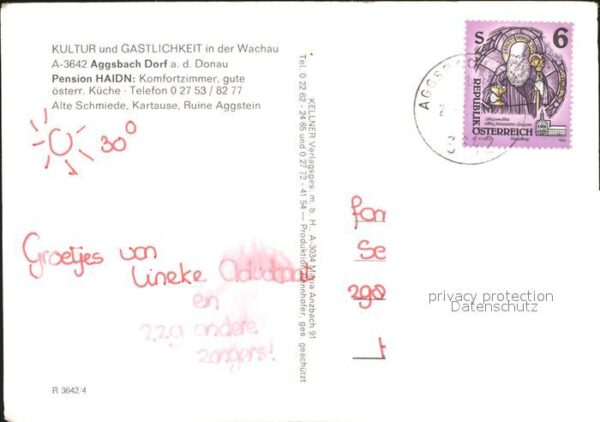 KULTUR und GASTLICHKEIT in der Wachau
A-3642 Aggsbach Dorf a. d. Donau
Pension HAIDN: Komfortzimmer, gute
österr. Küche · Telefon 0 27 53 / 82 77
Alte Schmiede, Kartause, Ruine Aggstein
30°
Groetjes van
Lineke
en
229 andere
zangers!
R 3642/4
KELLNER Verlagsges. m. b. H., A-3034 Maria Anzbach 91
Tel. 0 22 62 - 24 65 und 0 27 72 - 41 54 — Produktion ges. geschützt
S 6
REPUBLIK
ÖSTERREICH
AGGSB
fam
Se
2go
privacy protection
Datenschutz